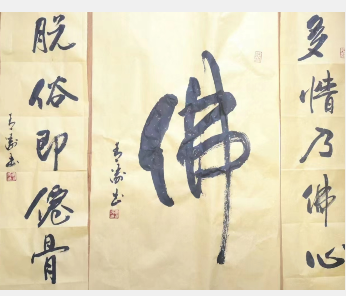 多情乃佛心
佛
脱俗即僊骨